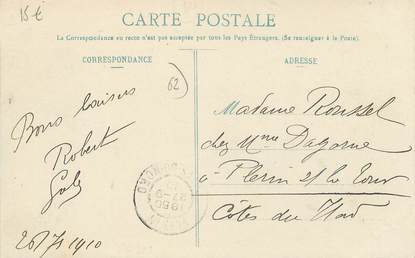 15 €
CARTE POSTALE
La Correspondance au recto n'est pas acceptée par tous les Pays Étrangers. (Se renseigner à la Poste).
CORRESPONDANCE
ADRESSE
62
Bons baisers
Robert
1910
Madame Roussel
chez Mme Dagorne
à Plerin
Côtes du Nord